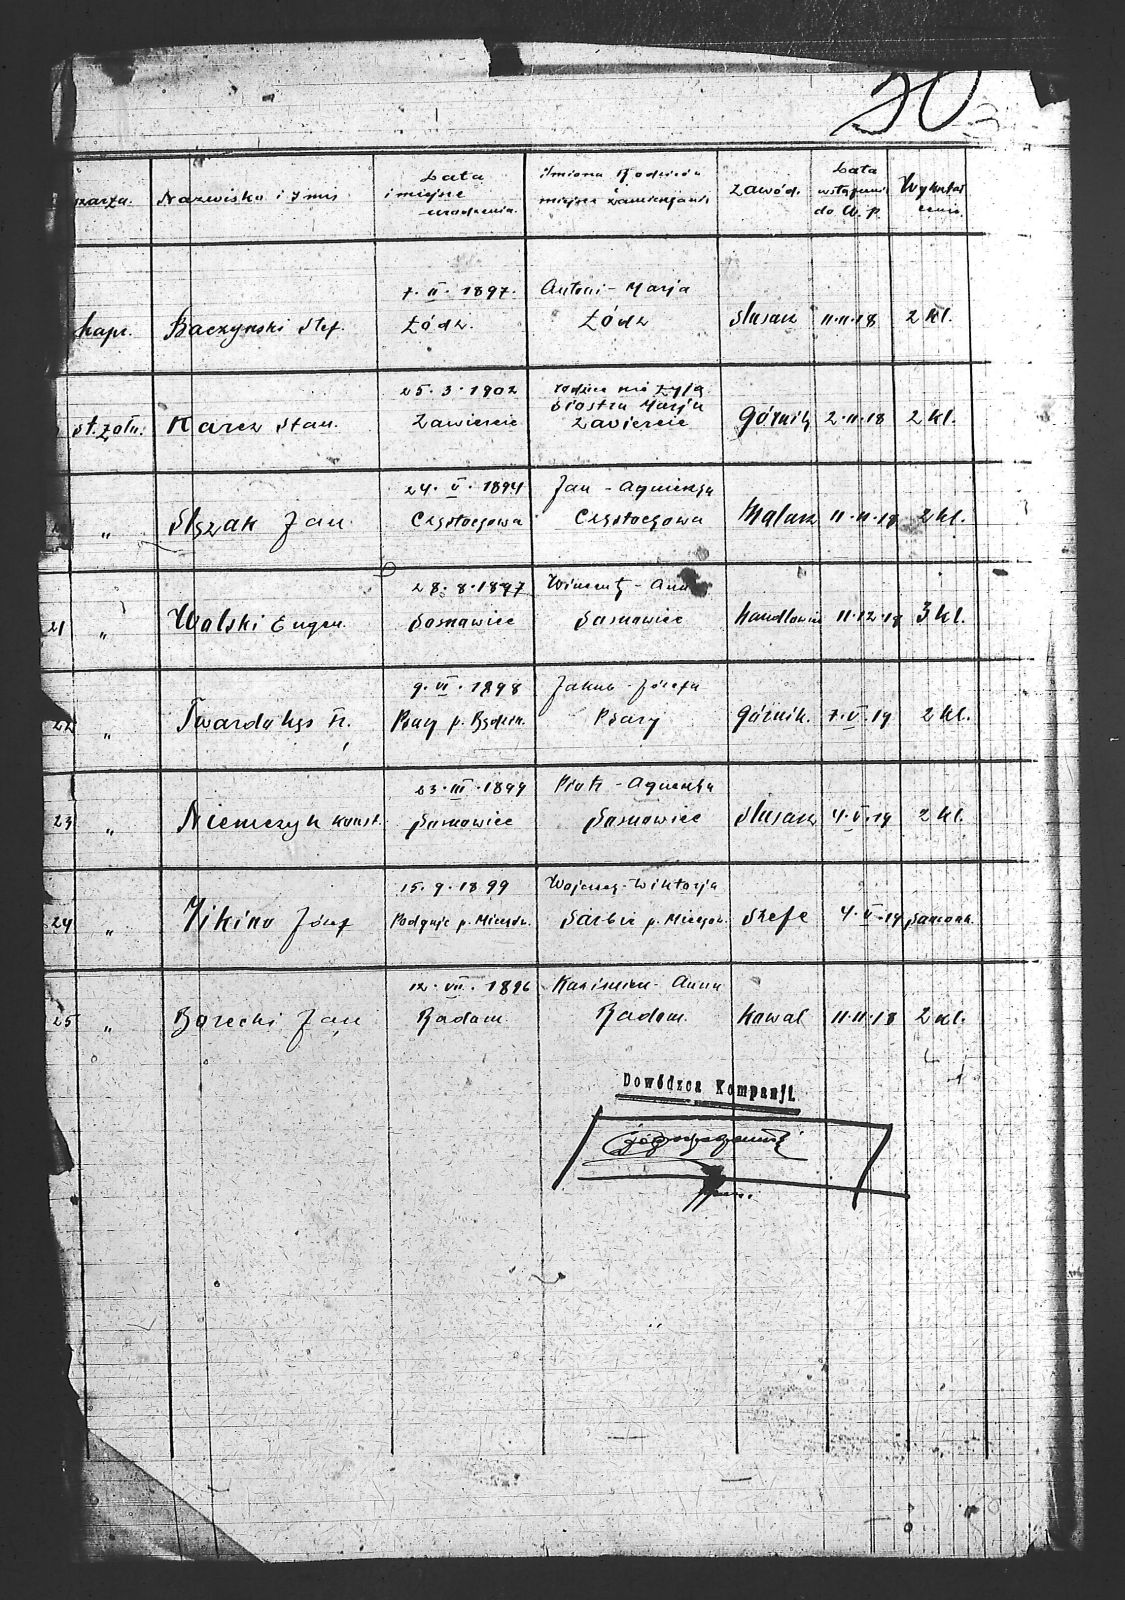 30
szarża. Nazwisko i Imię Data i miejsce urodzenia. Imiona Rodziców i miejsce zamieszkania Zawód. Data wstąpien. do W.p. Wykształcenie
7. II. 1897. Antoni - Marja
kapr. Baczyński Stef. Łódz. Łódz ślusarz 11.11.18 2 kl.
25. 3. 1902 rodzice nie żyją
siostra Marja
st.żołn. Karcz Stan. Zawiercie Zawiercie Górnik 2.11.18 2 kl.
24. V. 1894 Jan - Agnieszka
„ Ślęzak Jan. Częstochowa Częstochowa Malarz 11.11.18 2 kl.
28. 8. 1897 Wincenty - Anna
21 „ Walski Eugen. Sosnowiec Sosnowiec Handlowiec 11.12.18 3 kl.
9. VI. 1898 Jakub - Józefa
22 „ Twardokęs Fr. Psary p. Będzin. Psary Górnik. 7.V.19 2 kl.
23. III. 1899 Piotr - Agnieszka
23 „ Niemczyk Konst. Sosnowiec Sosnowiec ślusarz 4.V.19 2 kl.
15. 9. 1899 Wojciech - Wiktorja
24 „ Józef p. Miechów. p. Miechów. 4.V.19 samouk.
12. VII. 1896 Kazimierz - Anna
25 „ Borecki Jan Radom. Radom. Kowal 11.11.18 2 kl.
Dowódzca Kompanji.